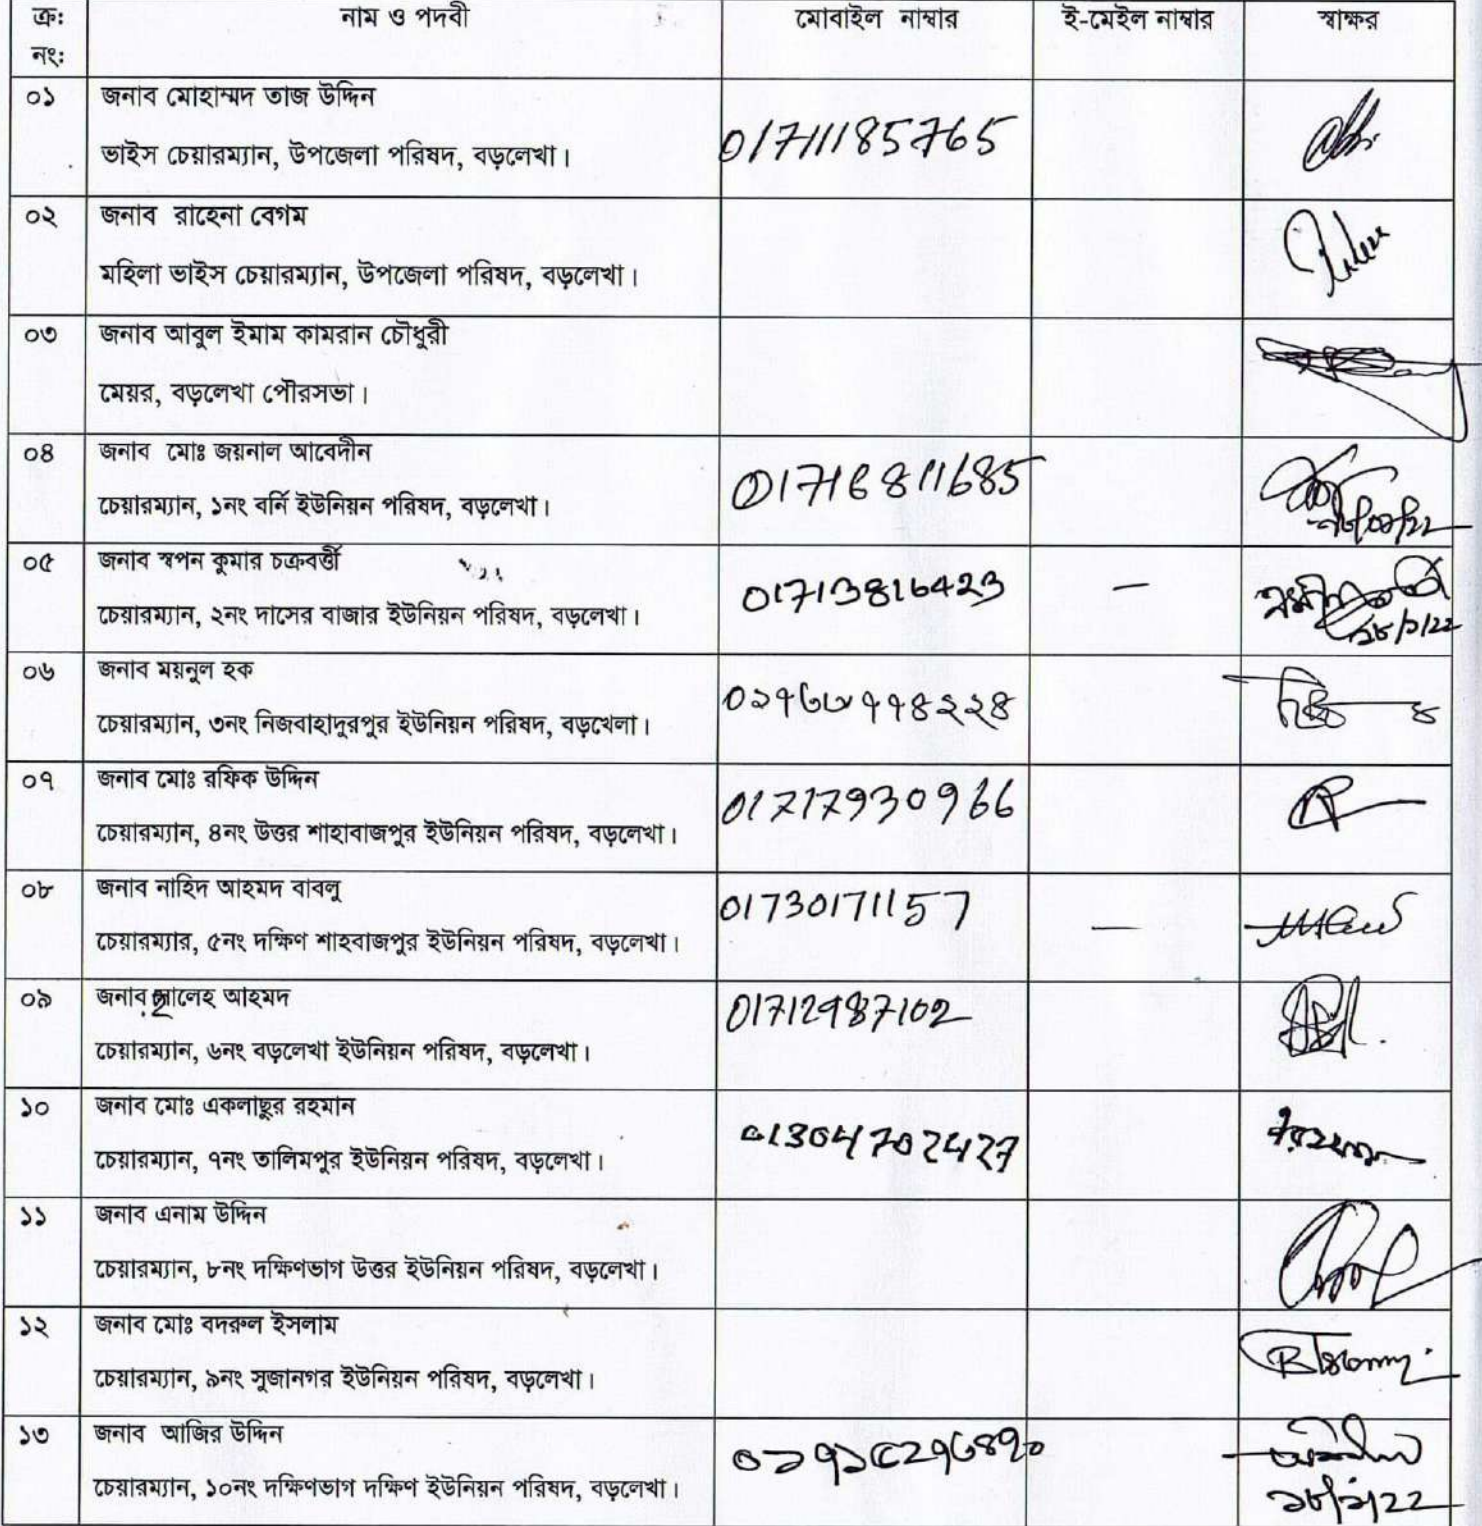 ক্র: নাম ও পদবী মোবাইল নাম্বার ই-মেইল নাম্বার স্বাক্ষর
নং:
০১ জনাব মোহাম্মদ তাজ উদ্দিন
ভাইস চেয়ারম্যান, উপজেলা পরিষদ, বড়লেখা। 01711185765
০২ জনাব রাহেনা বেগম
মহিলা ভাইস চেয়ারম্যান, উপজেলা পরিষদ, বড়লেখা।
০৩ জনাব আবুল ইমাম কামরান চৌধুরী
মেয়র, বড়লেখা পৌরসভা।
০৪ জনাব মোঃ জয়নাল আবেদীন
চেয়ারম্যান, ১নং বর্নি ইউনিয়ন পরিষদ, বড়লেখা। 01716811685
০৫ জনাব স্বপন কুমার চক্রবর্ত্তী
চেয়ারম্যান, ২নং দাসের বাজার ইউনিয়ন পরিষদ, বড়লেখা। 01713816423 —
০৬ জনাব ময়নুল হক
চেয়ারম্যান, ৩নং নিজবাহাদুরপুর ইউনিয়ন পরিষদ, বড়খেলা।
০৭ জনাব মোঃ রফিক উদ্দিন
চেয়ারম্যান, ৪নং উত্তর শাহাবাজপুর ইউনিয়ন পরিষদ, বড়লেখা। 01717930966
০৮ জনাব নাহিদ আহমদ বাবলু
চেয়ারম্যার, ৫নং দক্ষিণ শাহবাজপুর ইউনিয়ন পরিষদ, বড়লেখা। 01730171157 —
০৯ জনাব ছালেহ আহমদ
চেয়ারম্যান, ৬নং বড়লেখা ইউনিয়ন পরিষদ, বড়লেখা। 01712987102
১০ জনাব মোঃ একলাছুর রহমান
চেয়ারম্যান, ৭নং তালিমপুর ইউনিয়ন পরিষদ, বড়লেখা। 01304702427
১১ জনাব এনাম উদ্দিন
চেয়ারম্যান, ৮নং দক্ষিণভাগ উত্তর ইউনিয়ন পরিষদ, বড়লেখা।
১২ জনাব মোঃ বদরুল ইসলাম
চেয়ারম্যান, ৯নং সুজানগর ইউনিয়ন পরিষদ, বড়লেখা।
১৩ জনাব আজির উদ্দিন
চেয়ারম্যান, ১০নং দক্ষিণভাগ দক্ষিণ ইউনিয়ন পরিষদ, বড়লেখা।